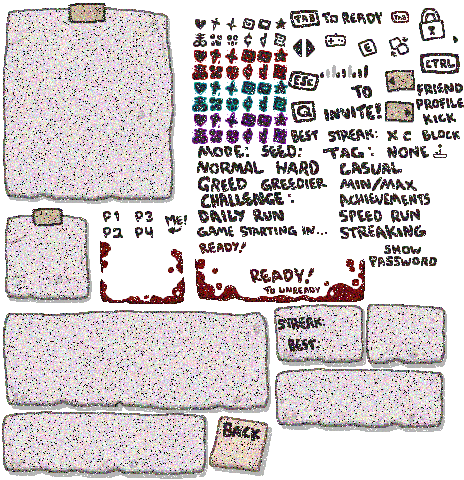 TAB TO READY TAB
E
ESC
CTRL
TO
INVITE!
Q
FRIEND
PROFILE
KICK
BEST STREAK: X C BLOCK
MODE: SEED: TAG: NONE
NORMAL HARD CASUAL
GREED GREEDIER MIN/MAX
CHALLENGE: ACHIEVEMENTS
DAILY RUN SPEED RUN
GAME STARTING IN... STREAKING
READY!
SHOW
PASSWORD
P1 P3 ME!
P2 P4
READY!
TO UNREADY
STREAK:
BEST:
BACK